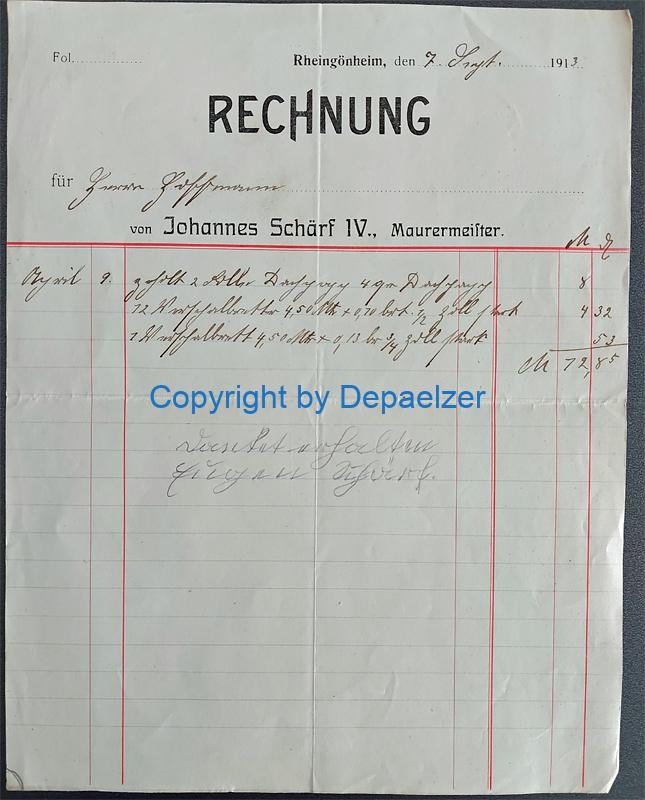 Fol.
Rheingönheim, den 7. Sept. 1913
RECHNUNG
für Herrn Hoffmann
von Johannes Schärf IV., Maurermeiſter.
M ₰
April 9. geholt 2 Rolle Dachpapp 4 qm Dachpapp 8
12 Verschalbretter 4,50 Mtr x 0,10 brt. 1/2 zoll stark 4 32
1 Verschalbrett 4,50 Mtr x 0,13 br 3/4 zoll stark 53
M 12,85
Copyright by Depaelzer
Dankend erhalten
Eugen Schärf.